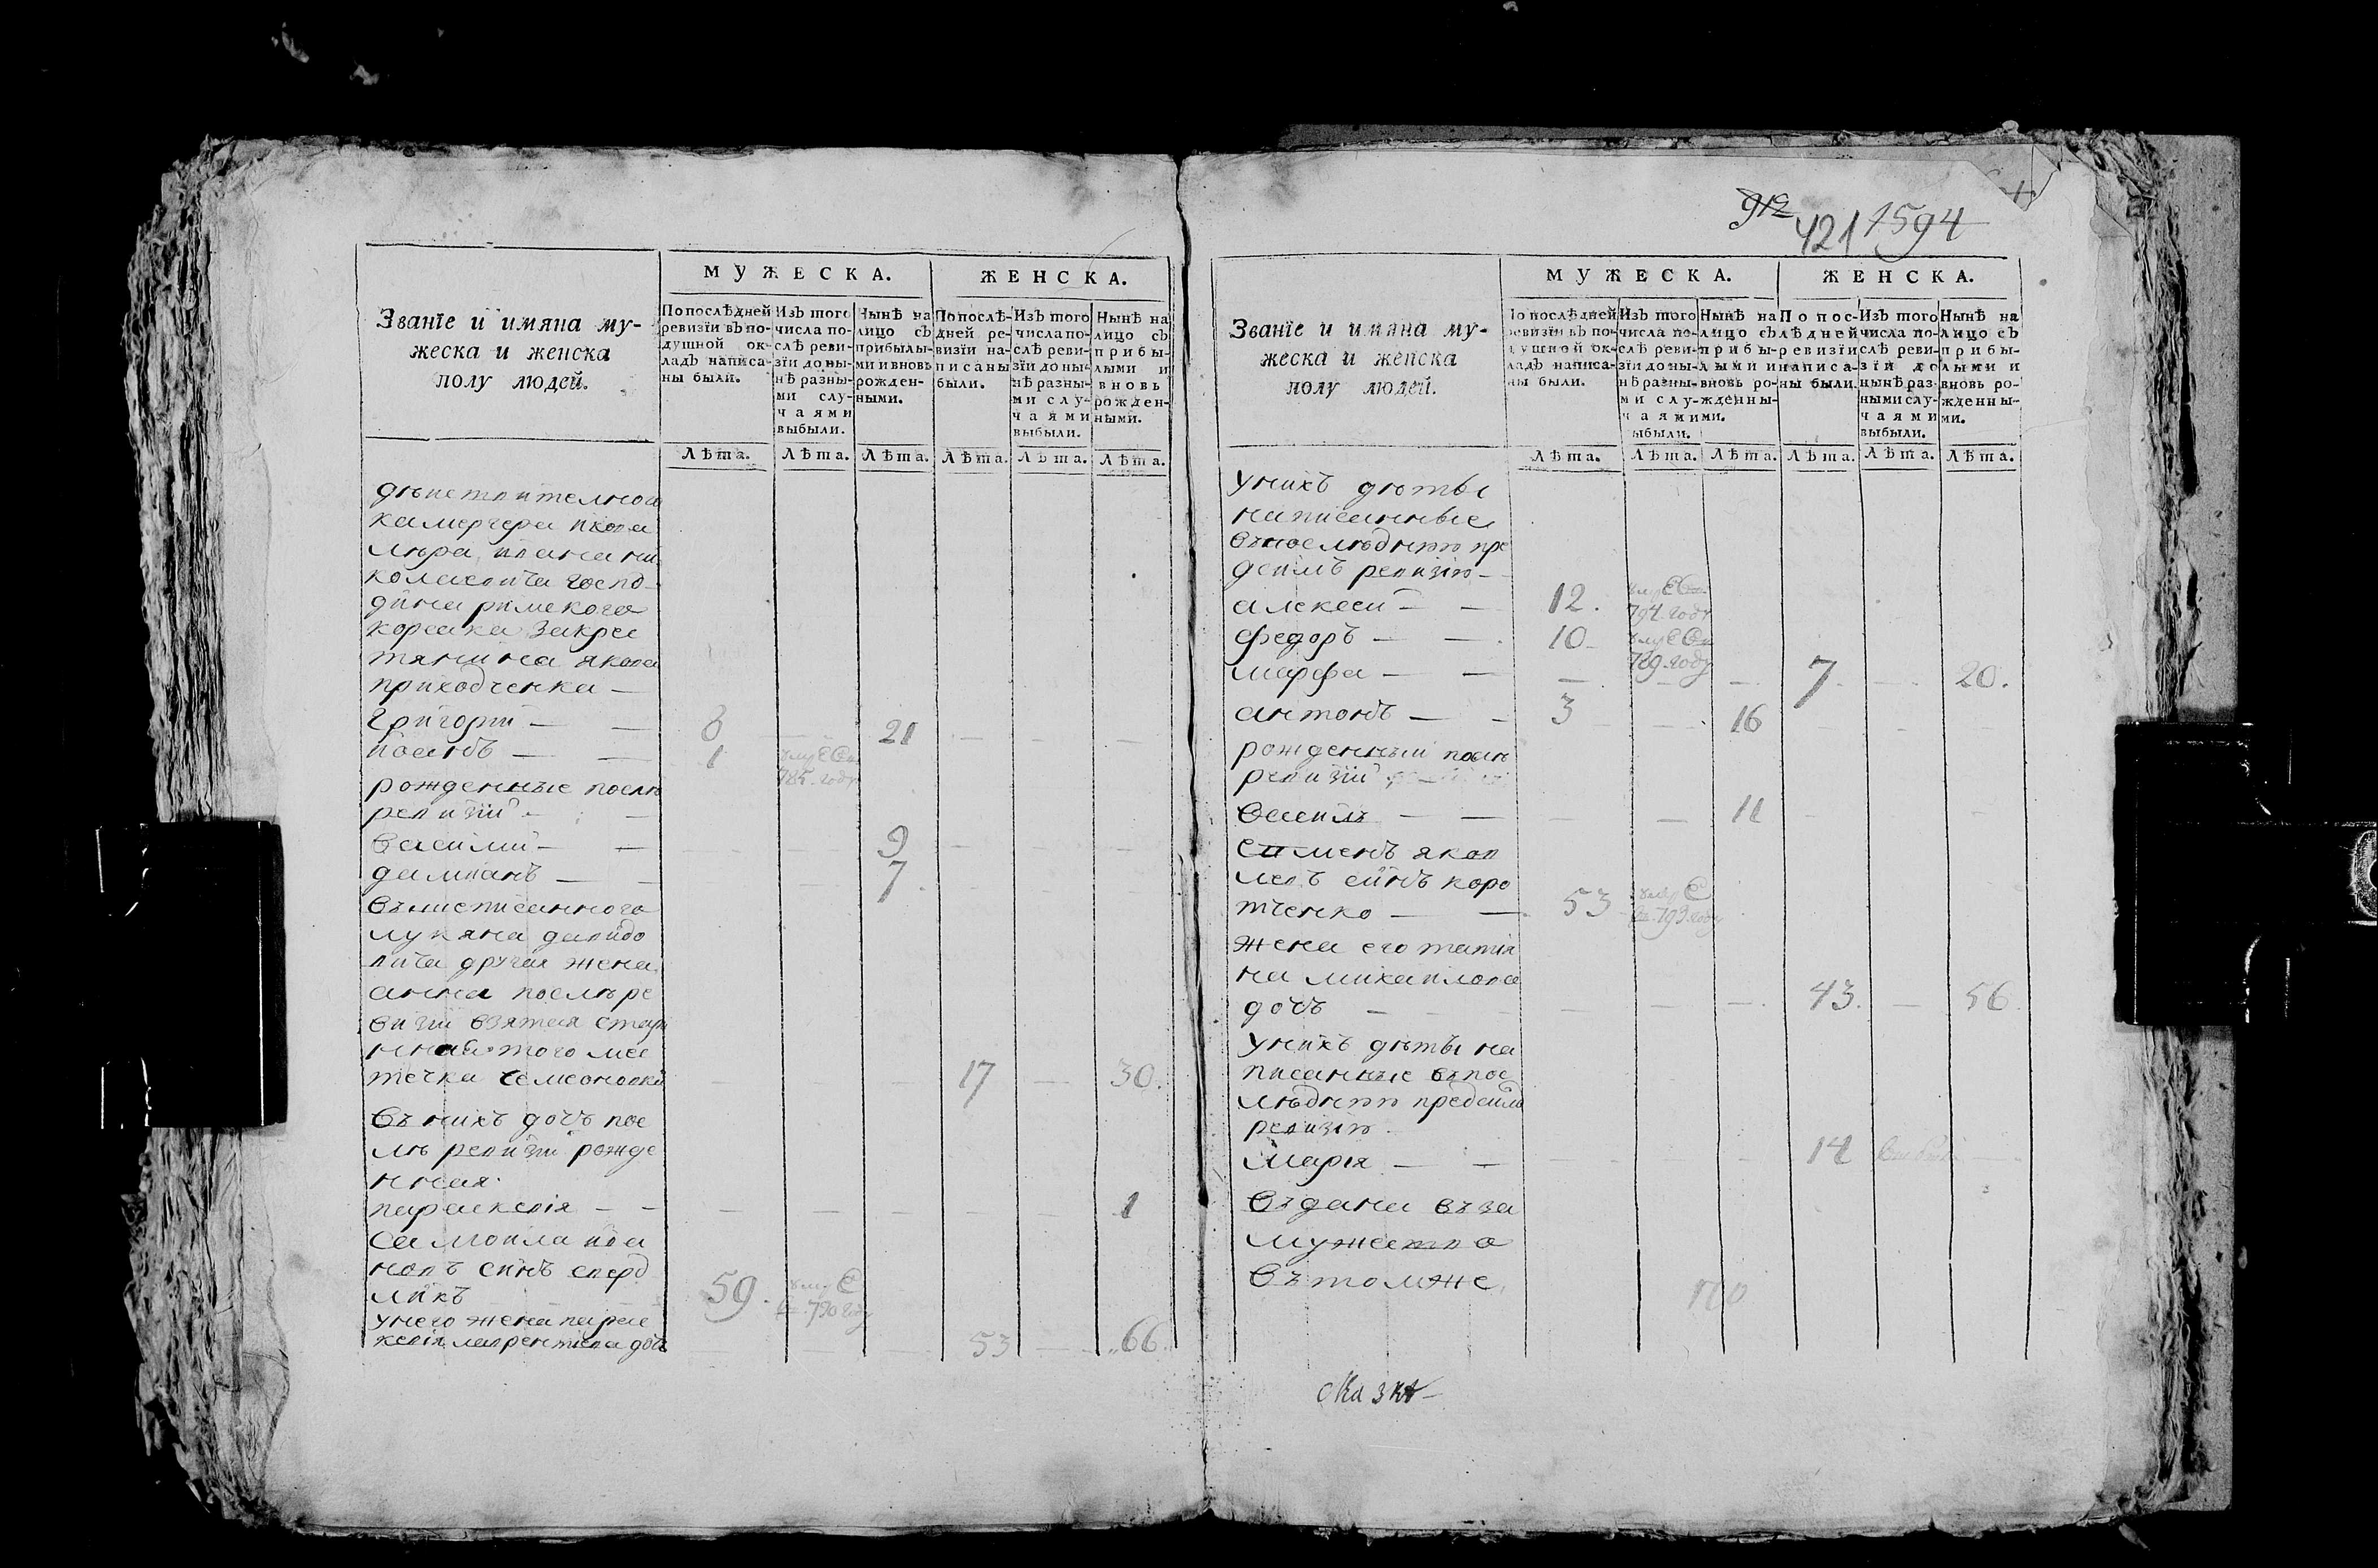 МУЖЕСКА.
ЖЕНСКА.
Званїе и имяна му-
жеска и женска
полу людей.
По послѣдней
ревизїи въ по-
душной ок-
ладъ написа-
ны были.
Изъ того
числа по-
слѣ реви-
зїи до ны-
нѣ разны-
ми слу-
чаями
выбыли.
Нынѣ на
лицо съ
прибылы-
ми и вновь
рожден-
ными.
По послѣ-
дней ре-
визїи на-
писаны
были.
Изъ того
числа по-
слѣ реви-
зїи до ны-
нѣ разны-
ми слу-
чаями
выбыли.
Нынѣ на
лицо съ
прибы-
лыми и
вновь
рожден-
ными.
Лѣта. Лѣта. Лѣта. Лѣта. Лѣта. Лѣта.
дѣиствителного
камергера икова
лѣра ивана ни
колаевича госпо
дина римского
корсака закрес
тянина якова
приходченка —
григории — — 8 21
иванъ — — 1 умре въ
785. году
рожденные послѣ
ревизии — —
василии — — 9
дамианъ — — 7
вышеписанного
лукяна давидо
вича другая жена
анна послѣ ре
визии взятая
того мес
течка 17 — 30.
въ нихъ дочь пос
лѣ ревизии рожде
нная
параскевия — — 1
самоила ива
новъ синъ сверд
ликъ 59. умре
въ 790 году
унего жена парас
кевия лаврентиева дочь 53 — 66.
912
421 1594
МУЖЕСКА.
ЖЕНСКА.
Званїе и имяна му-
жеска и женска
полу людей.
По послѣдней
ревизїи въ по-
душной ок-
ладъ написа-
ны были.
Изъ того
числа по-
слѣ реви-
зїи до ны-
нѣ разны-
ми слу-
чаями
выбыли.
Нынѣ на
лицо съ
прибы-
лыми и
вновь ро-
жденны-
ми.
По пос-
лѣдней
ревизїи
написа-
ны были.
Изъ того
числа по-
слѣ реви-
зїи до
нынѣ раз-
ными слу-
чаями
выбыли.
Нынѣ на
лицо съ
прибы-
лыми и
вновь ро-
жденны-
ми.
Лѣта. Лѣта. Лѣта. Лѣта. Лѣта. Лѣта.
унихъ дѣты
написанные
въпослѣднюю пре
дсимъ ревизию —
алексеи — — 12. умре въ
794. году
федоръ — — 10 умре въ
789. году
марфа — — 7 — 20.
антонъ — — 3 — 16
рожденныи послѣ
ревизии
василь — — 11
семенъ яков
левъ синъ коро
тченко — — 53 умре
въ 793. году
жена его татия
на михаилова
дочь — 43. — 56
унихъ дѣты на
писанные въпос
лѣднюю предсимъ
ревизию
мария — — 14
въдана въза
мужество
въ томже
сказка